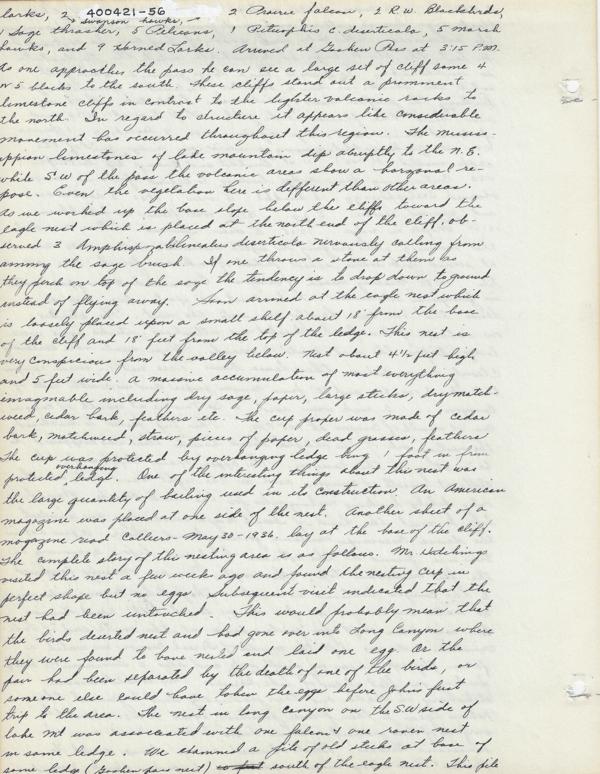 larks, 2 400421-56 2 Prairie falcon, 2 R.W. Blackbirds,
Swanson hawks,
1 Sage thrasher, 5 Pelicans, 1 Pituophis c. deserticola, 5 marsh
hawks, and 9 Horned Larks. Arrived at Goshen Pass at 3:15 P.M.
to one approaches the pass he can see a large set of cliff some 4
or 5 blocks to the south. These cliffs stand out a prominent
limestone cliffs in contrast to the lighter volcanic rocks to
the north. In regard to structure it appears like considerable
movement has occurred throughout this region. The mississ-
ippian limestones of lake mountain dip abruptly to the N.E.
while SW of the pass the volcanic areas show a horizonal re-
pose. Even the vegetation here is different than other areas.
As we worked up the base slope below the cliffs toward the
eagle nest which is placed at the north end of the cliff, ob-
served 3 Amphispiza bilineata deserticola nervously calling from
among the sage brush. If one throws a stone at them as
they perch on top of the sage the tendency is to drop down to ground
instead of flying away. Soon arrived at the eagle nest which
is loosely placed upon a small shelf about 18' from the base
of the cliff and 18' feet from the top of the ledge. This nest is
very conspicious from the valley below. Nest about 4 1/2 feet high
and 5 feet wide. a massive accumulation of most everything
imaginable including dry sage, paper, large sticks, dry match-
weed, cedar bark, feathers etc. The cup proper was made of cedar
bark, matchweed, straw, pieces of paper, dead grasses, feathers
The cup was protected by overhanging ledge being 1 foot in from
overhanging
protected ledge. One of the interesting things about this nest was
the large quantity of bailing used in its construction. An American
magazine was placed at one side of the nest. Another sheet of a
magazine read Colliers - May 30 - 1936. lay at the base of the cliff.
The complete story of the nesting area is as follows. Mr. Hutchings
visited this nest a few weeks ago and found the nesting cup in
perfect shape but no eggs. Subsequent visit indicated that the
nest had been untouched. This would probably mean that
the birds deserted nest and had gone over into Long Canyon where
they were found to have nested and laid one egg. Or the
pair had been separated by the death of one of the birds, or
someone else could have taken the eggs before John's first
trip to the area. The nest in long canyon on the SW side of
lake Mt was associated with one falcon & one raven nest
in same ledge. We examined a pile of old sticks at base of
same ledge (Goshen pass nest) south of the eagle nest. This pile